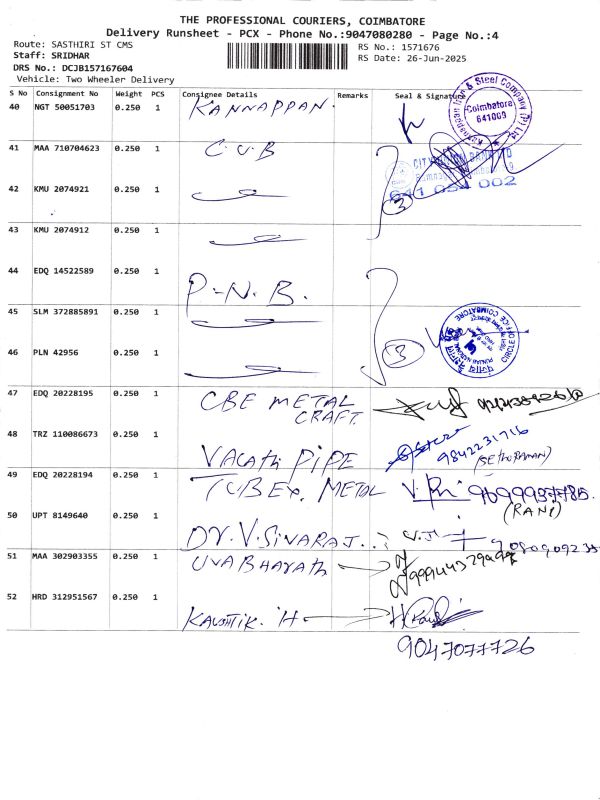 THE PROFESSIONAL COURIERS, COIMBATORE
Delivery Runsheet - PCX - Phone No.:9047080280 - Page No.:4
Route: SASTHIRI ST CMS
RS No.: 1571676
Staff: SRIDHAR
RS Date: 26-Jun-2025
DRS No.: DCJB157167604
Vehicle: Two Wheeler Delivery
S No Consignment No Weight PCS Consignee Details Remarks Seal & Signature
40 NGT 50051703 0.250 1 KANNAPPAN.
Steel Company (P) Ltd
Coimbatore
641009
41 MAA 710704623 0.250 1 C.U.B
CITY
641 054 002
42 KMU 2074921 0.250 1
3
43 KMU 2074912 0.250 1
44 EDQ 14522589 0.250 1 P.N.B.
45 SLM 372885891 0.250 1
CIRCLE OFFICE COIMBATORE
46 PLN 42956 0.250 1
3
47 EDQ 20228195 0.250 1 CBE METAL
CRAFT.
48 TRZ 110086673 0.250 1 VALATH PIPE
9842231716
(SETHURAMAN)
49 EDQ 20228194 0.250 1 TUBEX. METAL
9699937785.
(RANI)
50 UPT 8149640 0.250 1 DR.V.SIVARAJ..
51 MAA 302903355 0.250 1 UVABHARATH
52 HRD 312951567 0.250 1 KAUSHTIK. H
9047077726